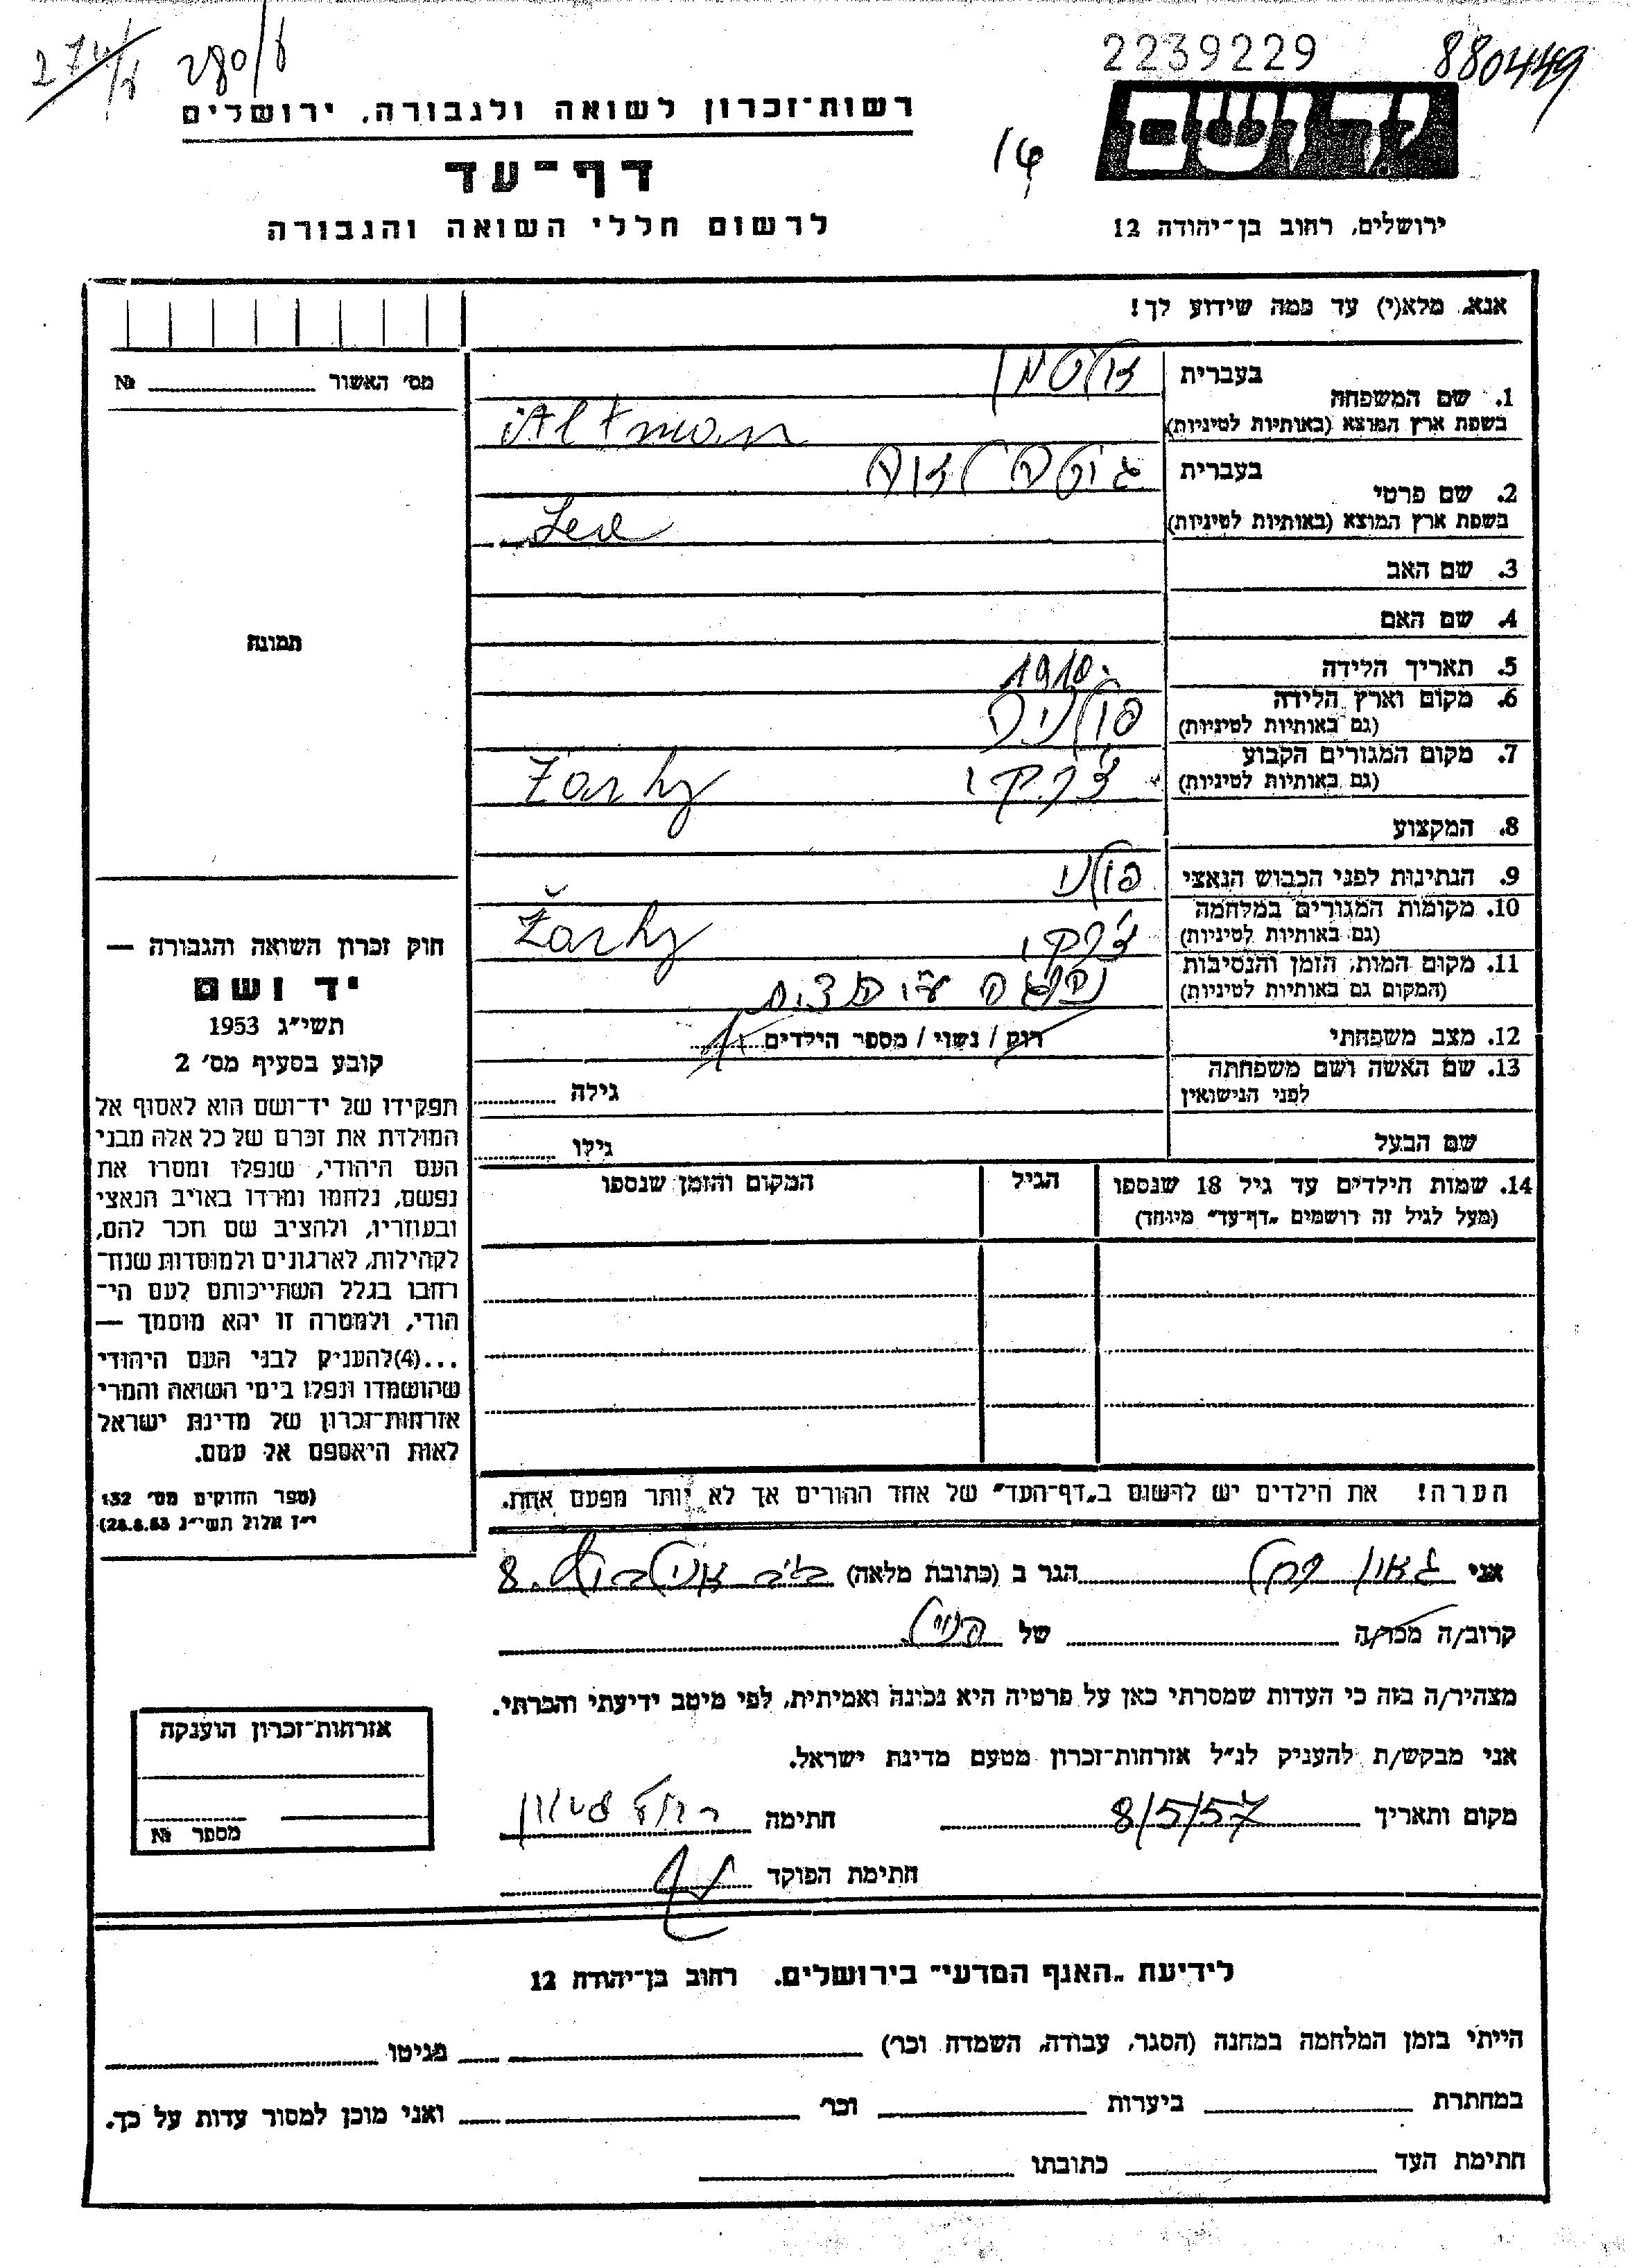 274/ 280/
2239229 880449
רשות־זכרון לשואה ולגבורה, ירושלים
יד ושם
דף־עד
לרשום חללי השואה והגבורה
ירושלים, רחוב בן־יהודה 12
אנא, מלא(י) עד כמה שידוע לך!
מס׳ האשור №
1. שם המשפחה
בעברית אלטמן
בשפת ארץ המוצא (באותיות לטיניות) Altman
2. שם פרטי
בעברית לאה
בשפת ארץ המוצא (באותיות לטיניות) Lea
3. שם האב
4. שם האם
תמונה
5. תאריך הלידה 1910
6. מקום וארץ הלידה פולניה
(גם באותיות לטיניות)
7. מקום המגורים הקבוע ז׳רקי Zarky
(גם באותיות לטיניות)
8. המקצוע
9. הנתינות לפני הכבוש הנאצי פולני
10. מקומות המגורים במלחמה ז׳רקי Žarky
(גם באותיות לטיניות)
11. מקום המות, הזמן והנסיבות
(המקום גם באותיות לטיניות)
12. מצב משפחתי רוק / נשוי / מספר הילדים
13. שם האשה ושם משפחתה
לפני הנישואין גילה
שם הבעל גילו
14. שמות הילדים עד גיל 18 שנספו
(מעל לגיל זה רושמים „דף־עד” מיוחד)
הגיל
המקום והזמן שנספו
הערה! את הילדים יש לרשום ב„דף־העד” של אחד ההורים אך לא יותר מפעם אחת.
חוק זכרון השואה והגבורה —
יד ושם
תשי״ג 1953
קובע בסעיף מס׳ 2
תפקידו של יד־ושם הוא לאסוף אל
המולדת את זכרם של כל אלה מבני
העם היהודי, שנפלו ומסרו את
נפשם, נלחמו ומרדו באויב הנאצי
ובעוזריו, ולהציב שם וזכר להם,
לקהילות, לארגונים ולמוסדות שנח־
רבו בגלל השתייכותם לעם הי־
הודי, ולמטרה זו יהא מוסמך —
...(4)להעניק לבני העם היהודי
שהושמדו ונפלו בימי השואה והמרי
אזרחות־זכרון של מדינת ישראל
לאות היאספם אל עמם.
(ספר החוקים מס׳ 132
י״ז אלול תשי״ג 28.8.53)
אני גאון רחל הגר ב (כתובת מלאה) 8
קרוב/ה מכר/ה של
מצהיר/ה בזה כי העדות שמסרתי כאן על פרטיה היא נכונה ואמיתית, לפי מיטב ידיעתי והכרתי.
אני מבקש/ת להעניק לנ״ל אזרחות־זכרון מטעם מדינת ישראל.
מקום ותאריך 8/5/57 חתימה רחל גאון
חתימת הפוקד
אזרחות־זכרון הוענקה
מספר №
לידיעת „האגף המדעי” בירושלים, רחוב בן־יהודה 12
הייתי בזמן המלחמה במחנה (הסגר, עבודה, השמדה וכו׳) בגיטו
במחתרת ביערות וכו׳ ואני מוכן למסור עדות על כך.
חתימת העד כתובתו